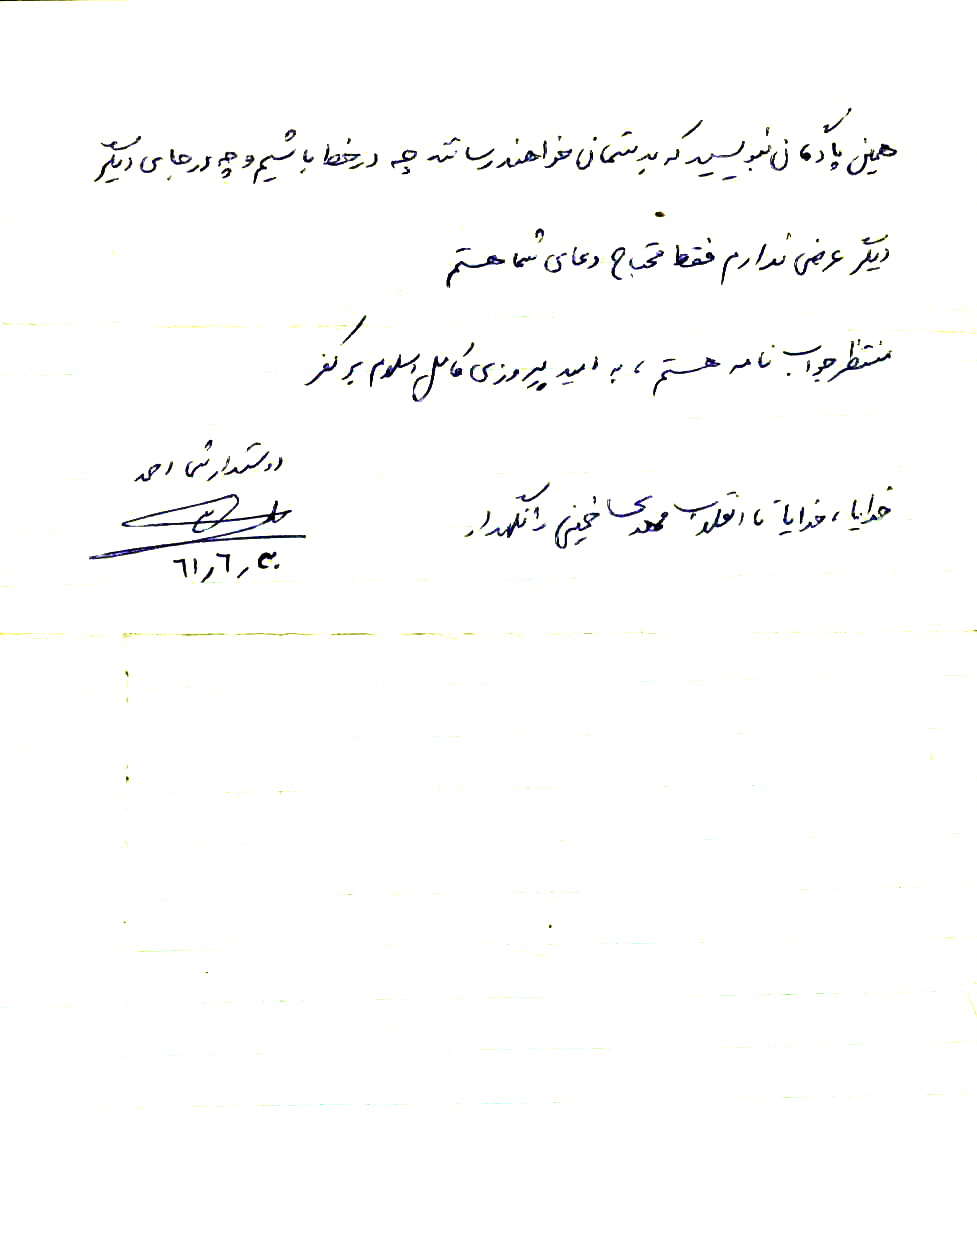 همین پادگان بنویسید که بدستمان خواهند رساند چه در خط باشیم و چه در جای دیگر
دیگر عرضی ندارم فقط محتاج دعای شما هستم
منتظر جواب نامه هستم ، به امید پیروزی کامل اسلام بر کفر
دوستدار شما احمد
خدایا ، خدایا تا انقلاب مهدی خمینی را نگهدار
۶۱٫۶٫۳۰